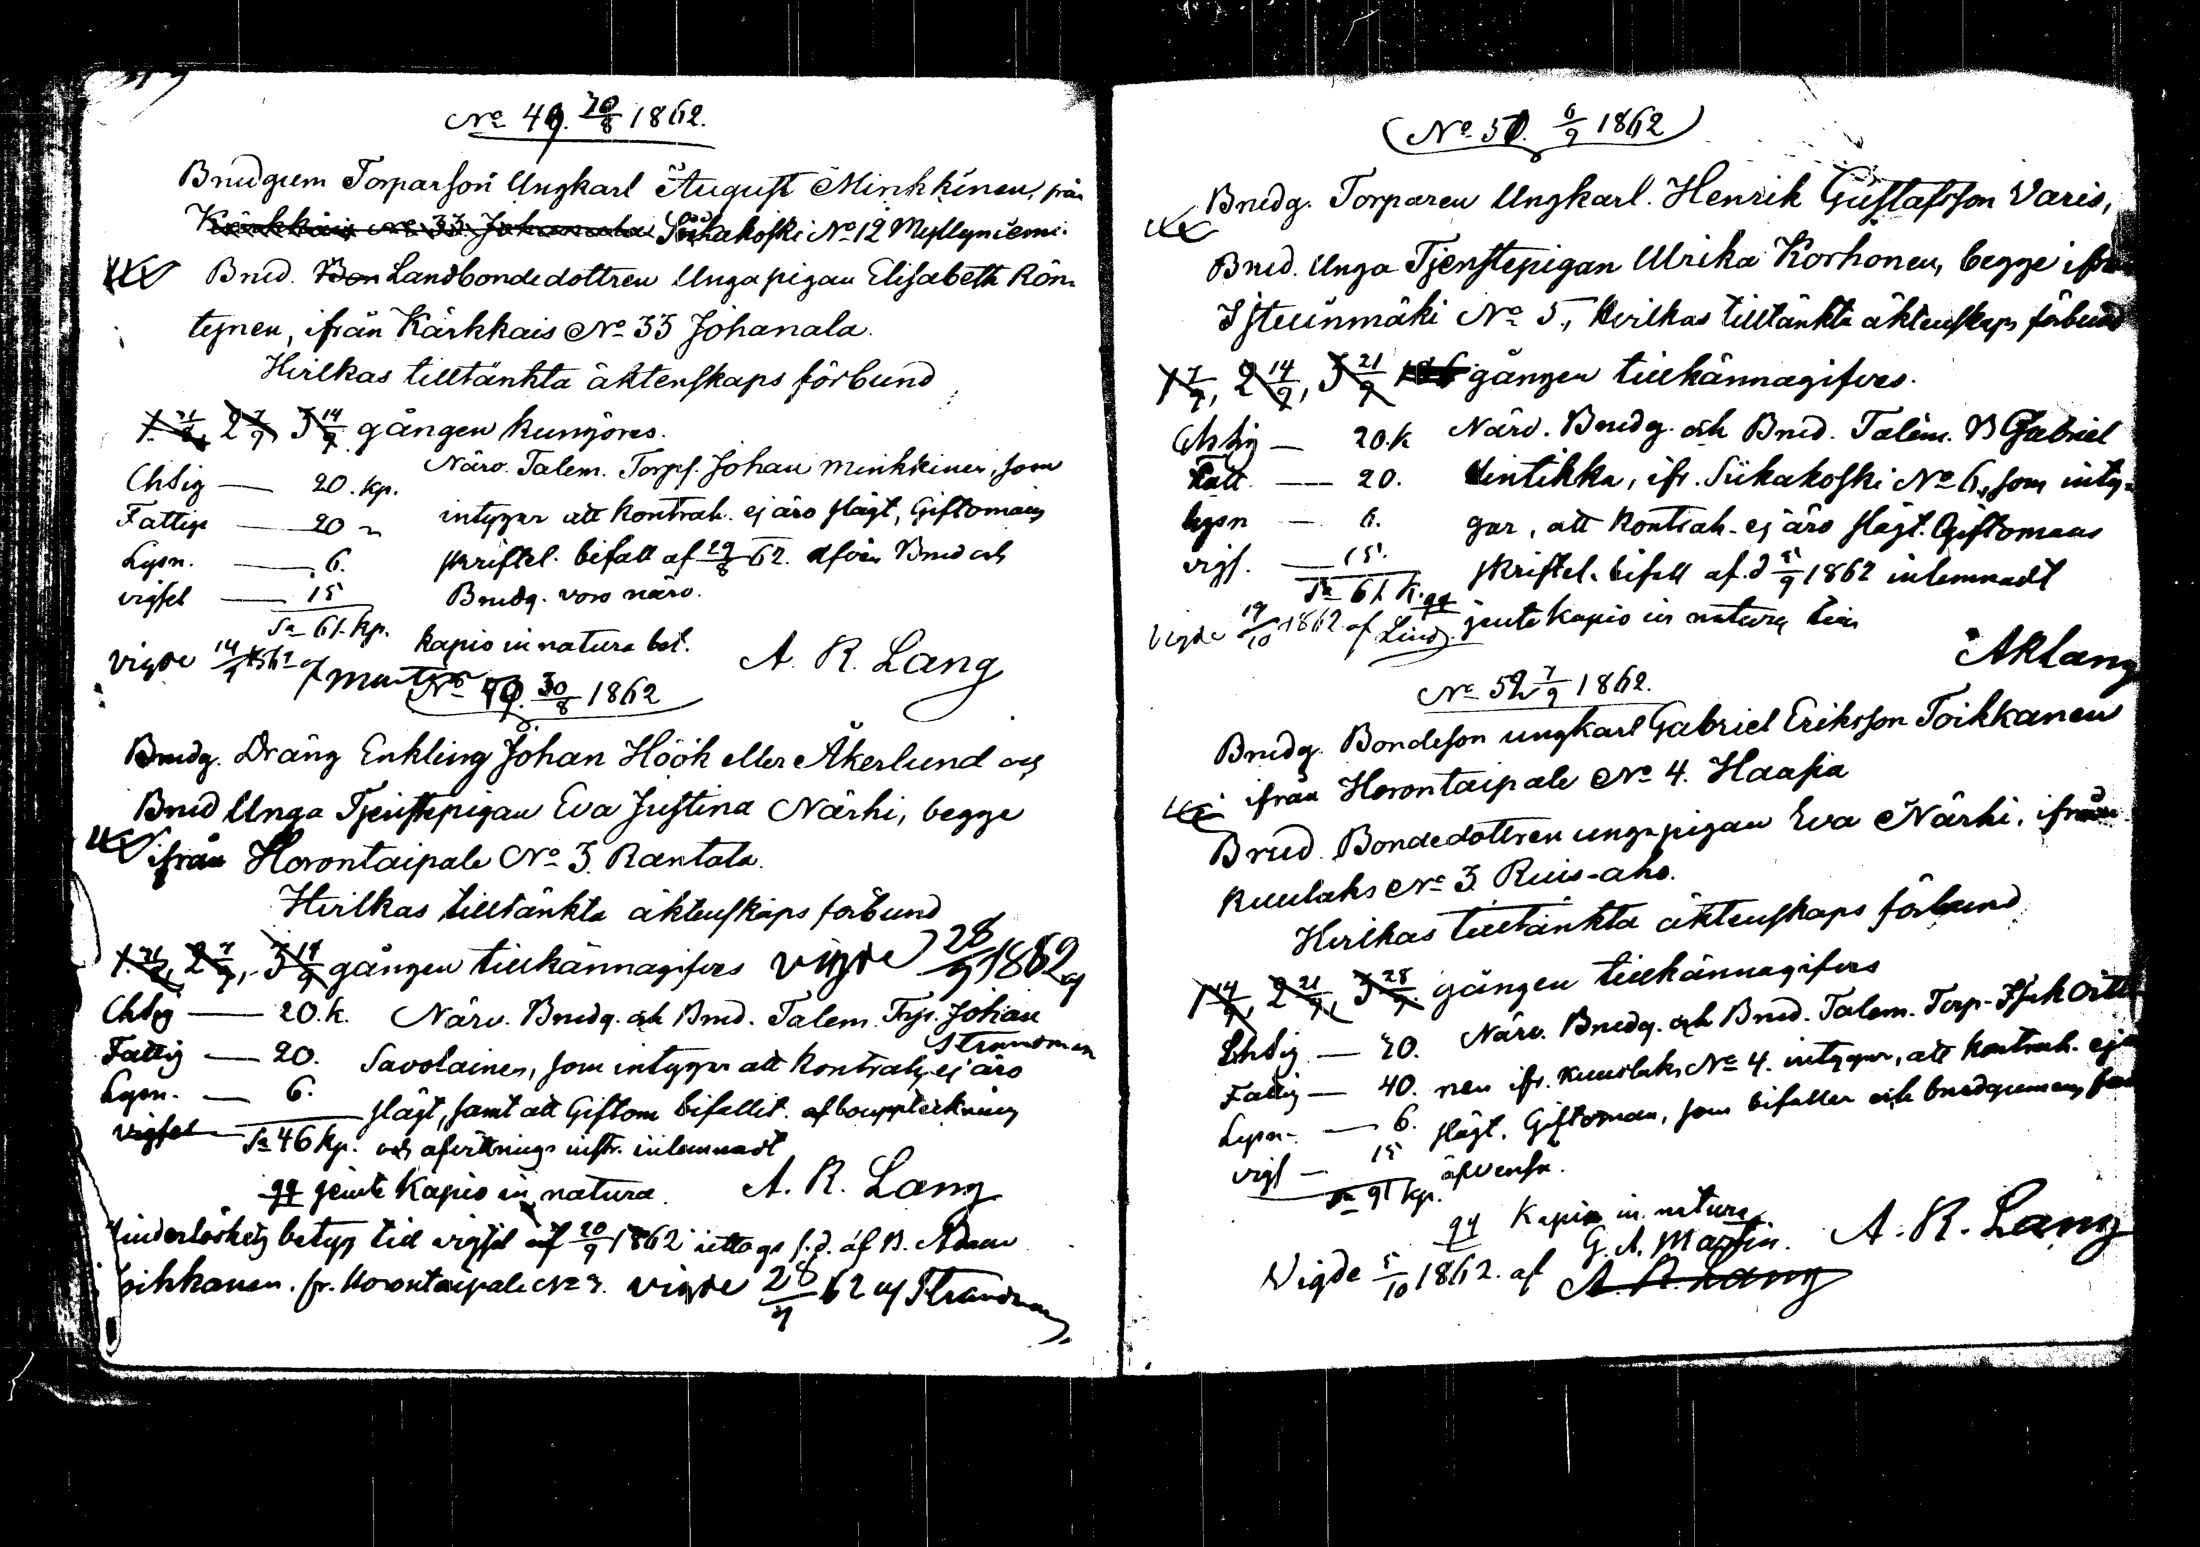 No 49. 30/8 1862.
Brudgum Torparson Ungkarl August Minkkinen, från
Kärkkäis No 33 Johanala Siikakoski No 12 Myllyniemi.
Brud. Bon Landbondedottren Unga pigan Elisabeth Rön-
tynen, ifrån Kärkkais No 33 Johanala.
Hvilkas tilltänkta äktenskaps förbund
1. 31/8, 2 7/9, 3 14/9 gången kungöres.
Chsig — 20. kp. Närv. Talem. Torps. Johan Minkkinen, som
Fattige — 20 " intygar att kontrah. ej äro slägt, Giftomans
Lysn. — 6. skriftel. bifall af 29/8 62. Brud och
vigsel — 15 Brudg. voro närv.
Sa 61. kp. kapio in natura bet.
Vigde 14/9 1862 af A. R. Lang
No 50. 30/8 1862
Brudg. Dräng Enkling Johan Höök eller Åkerlund och
Brud Unga Tjenstepigan Eva Justina Närhi, begge
ifrån Horontaipale No 3. Rantala.
Hvilkas tilltänkta äktenskaps förbund
1. 31/8, 2 7/9, 3 14/9 gången tillkännagifves vigde 28/9 1862 af
Strandman
Chsig — 20. k. Närv. Brudg. och Brud. Talem. Trp. Johan
Fattig — 20. Savolainen, som intygar att kontrah. ej äro
Lysn. — 6. slägt, samt att Giftom bifallit. afbouppteckning
vigsel Sa 46 kp. och afvittrings instr. inlemnadt
gg jemte Kapio in natura. A. R. Lang
hinderlöshets betyg till vigsel af 20/9 1862 uttogs s. d. af B. Adam
fr. Horontaipale No 3. vigde 28/9 62 af Strandman
No 51. 6/9 1862
Brudg. Torparen Ungkarl. Henrik Gustafsson Varis,
Brud. Unga Tjenstepigan Ulrika Korhonen, begge ifrån
Istuinmäki No 5, hvilkas tilltänkta äktenskaps förbund
1 7/9, 2 14/9, 3 21/9 gången tillkännagifves.
Chsig — 20. k Närv. Brudg. och Brud. Talem. B Gabriel
Fatt — 20. Hintikka, ifr. Siikakoski No 6, som inty-
lysn — 6. gar, att kontrah. ej äro slägt. Giftomans
vigs. — 15. skriftel. bifall af. d 5/9 1862 inlemnadt
Sa 61. K. gg jemte Kapio in natura
Vigde 19/10 1862 af Lind.
ARLang
No 52 7/9 1862.
Brudg. Bondeson ungkarl Gabriel Eriksson Toikkanen
ifrån Horontaipale No 4. Haasia
Brud. Bondedottren unga pigan Eva Närhi, ifrån
Kuulaks No 3. Ruis-aho.
Hvilkas tilltänkta äktenskaps förbund
1 14/9, 2 21/9, 3 28/9 gången tillkännagifves
Chsig — 20. Närv. Brudg. och Brud. Talem. Torp-
Fattig — 40. nen ifr. Kuuslaks No 4. intygar, att kontrah. ej
Lysn. — 6. slägt. Giftoman, som bifaller och brudgummens
vigs — 15 äfvenså.
Sa 91 kp.
gg Kapio in natura
Vigde 5/10 1862. af G. A. Martin. A. R. Lang
A. R. Lang